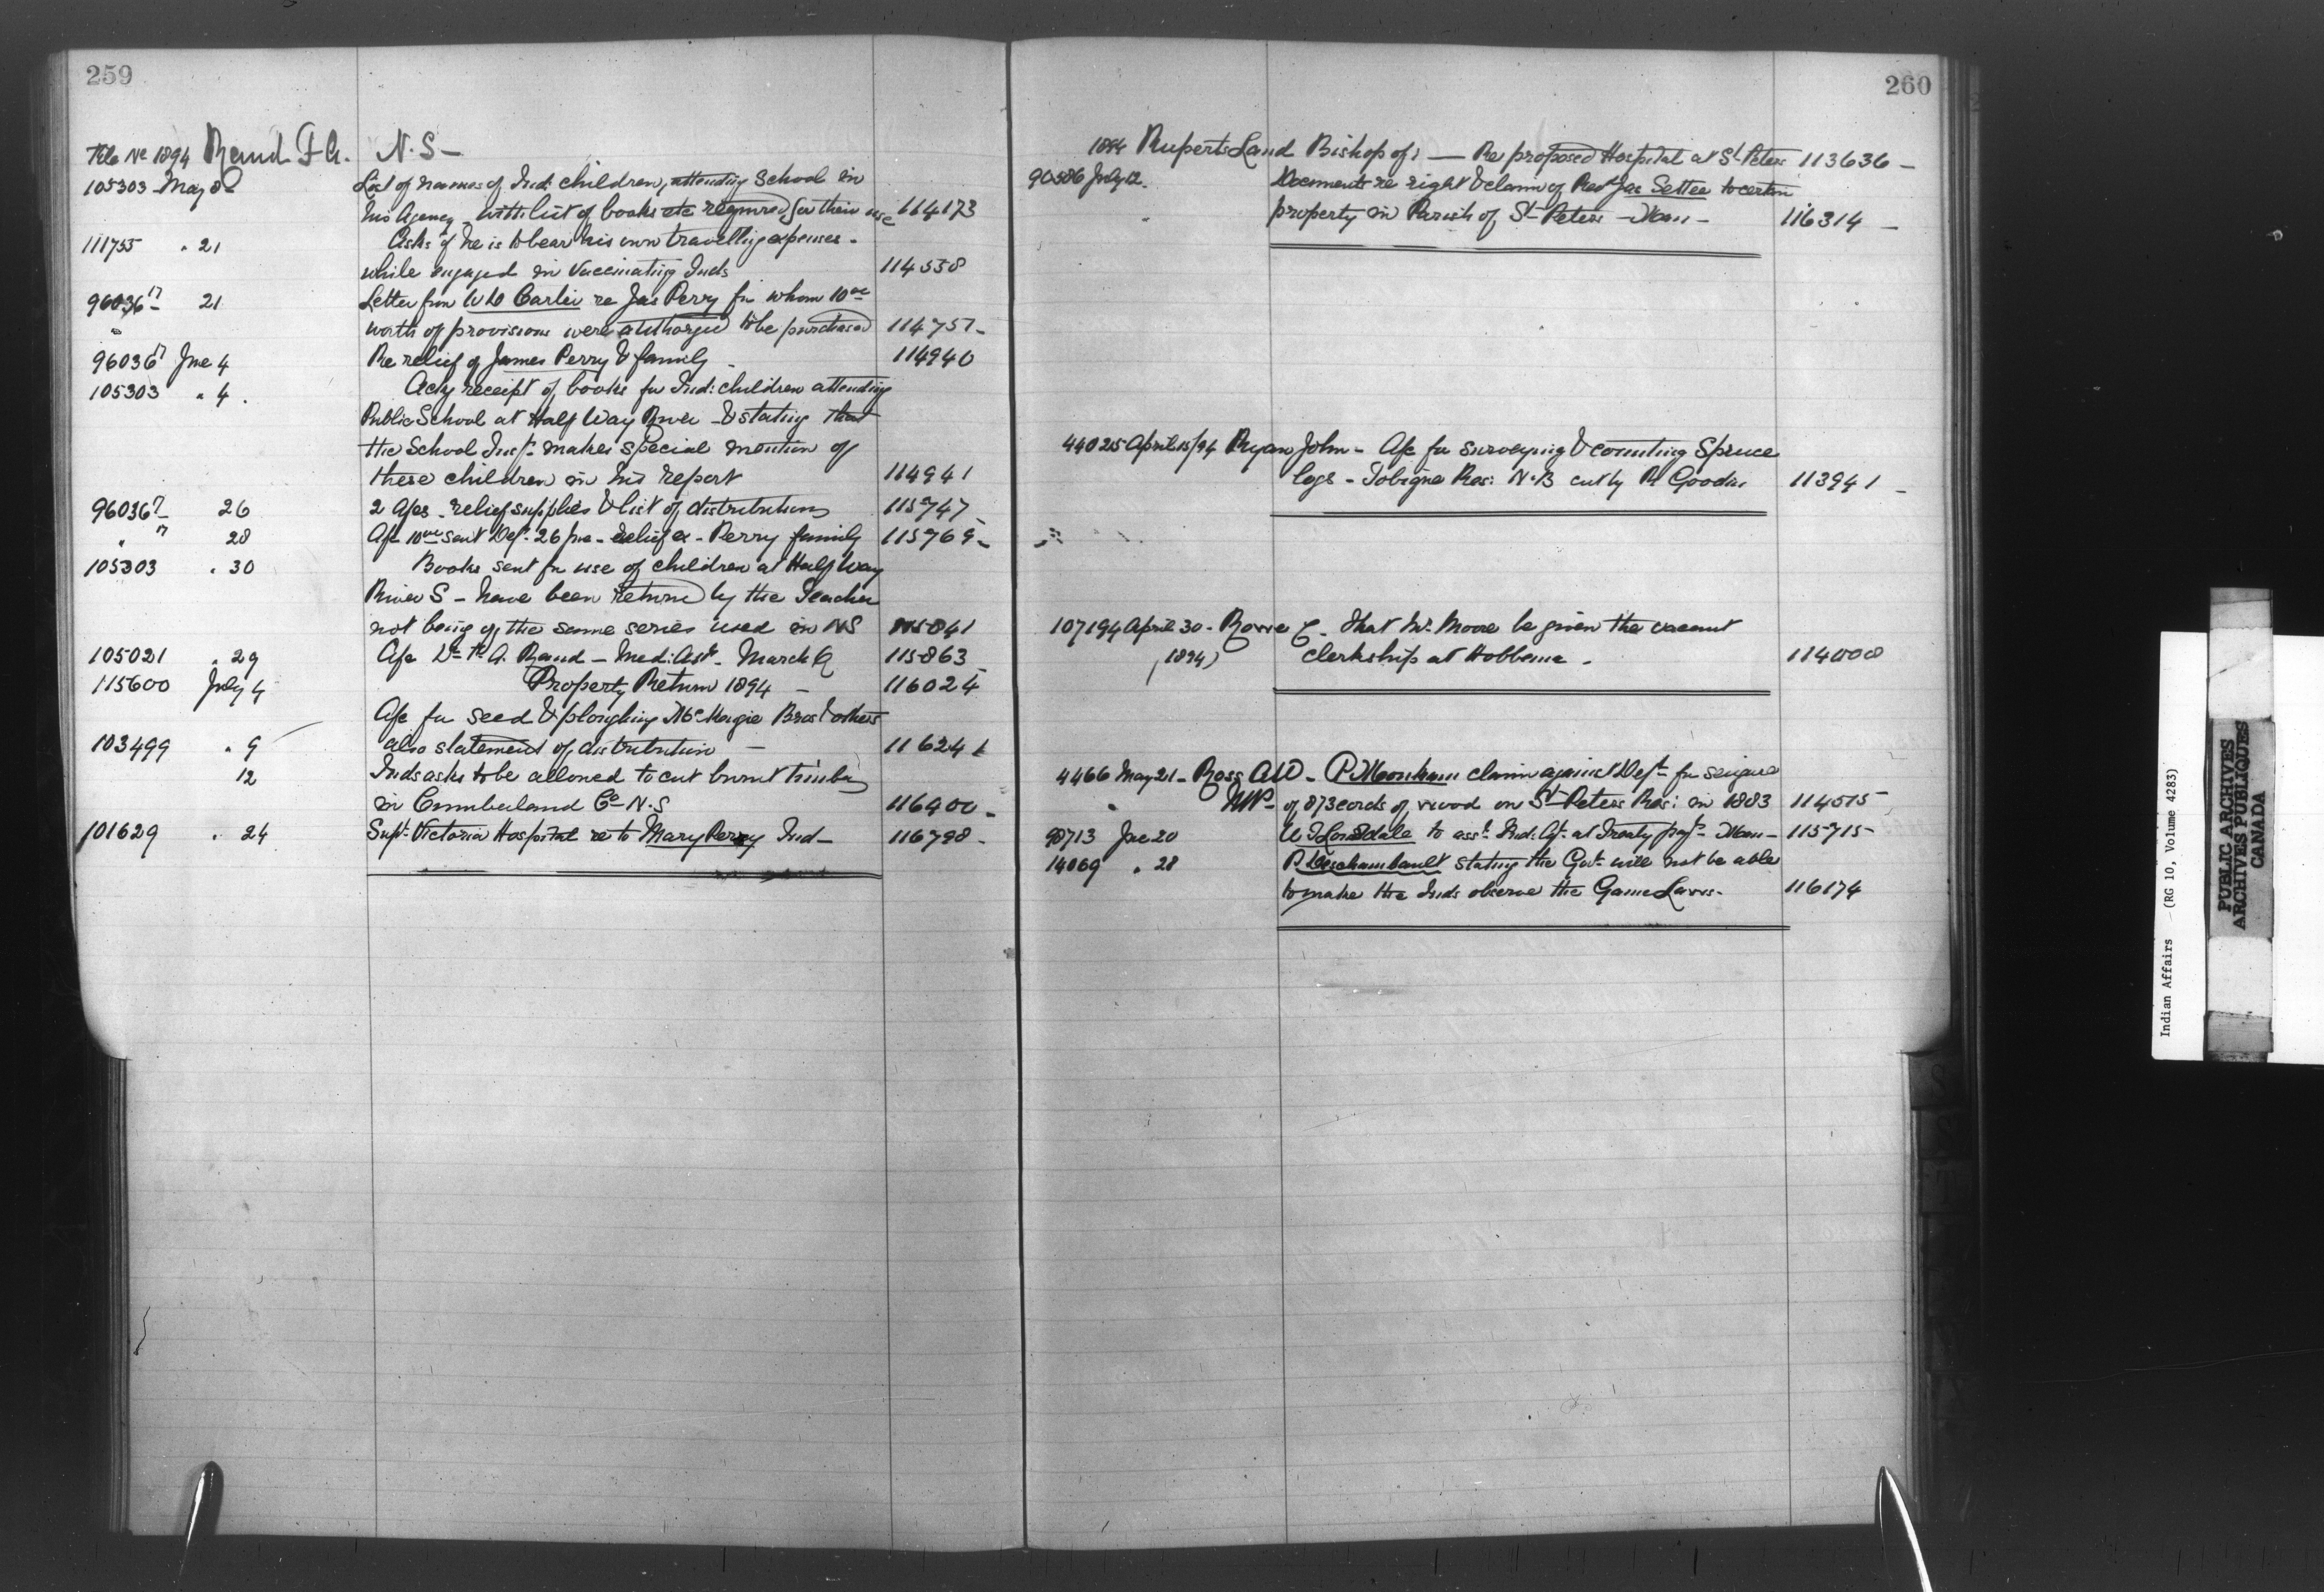 259
File No 1894 Rand F A. N.S —
105303 May 8 List of names of Ind: children, attending School in
his Agency — with list of books etc required for their use 114173
111755 " 21 Asks if he is to bear his own travelling expenses —
while engaged in Vaccinating Inds 114558
96036 17 — 21 Letter from re Jas Perry for whom 10 00
worth of provisions were authorized to be purchased 114757 —
96036 17 Jne 4 Re relief of James Perry & family — 114940
105303 " 4 . Ackg receipt of books for Ind: children attending
Public School at Half Way River — & stating that
the School Inspr makes special mention of
these children in his report 114941
96036 17 — 26 2 A/cs relief supplies & list of distribution 115747 —
" 17 28 A/c 10 00 sent Dept 26 Jne — relief — Perry family 115769 —
105303 " 30 Books sent for use of children at Half Way
River S — have been returned by the Teacher
not being of the same series used in NS 115841
105021 " 29 A/c Dr A. Rand — Med: — March Q 115863
115600 July 4 Property Return 1894 — 116025
A/c for seed & ploughing Bros & others
103499 " 9 also statement of distribution — 116241
12 Inds asks to be allowed to cut burnt timber
in Cumberland Co N.S 116400 —
101629 " 24 Supt Victoria Hospital re to Mary Perry Ind — 116798 —
260
1894 Ruperts Land Bishop of : — Re proposed Hospital at St Peters 113636 —
90586 July 12. Documents re right & claim of Revd Jas Settee to certain
" property in Parish of St Peters — Man — 116314 —
44025 April 15/94 Ryan John — A/c for surveying & counting Spruce
logs — Tobique Res: N.B cut by R 113941 —
107194 April 30 — C. That Mr Moore be given the vacant
(1894) clerkship at Hobbema . 114008
4466 May 21 — Ross A W — P claim against Dept for seizure
" MP — of 873 cords of wood on St Peters Res: in 1883 114515
90713 Jne 20 W J Lonsdale to asst Ind: Agt at Treaty payt — Man — 115715
14069 " 28 P Deschambault stating the Govt will not be able
to make the Inds observe the Game Laws . 116174
Indian Affairs (RG 10, Volume 4283)
PUBLIC ARCHIVES
ARCHIVES PUBLIQUES
CANADA